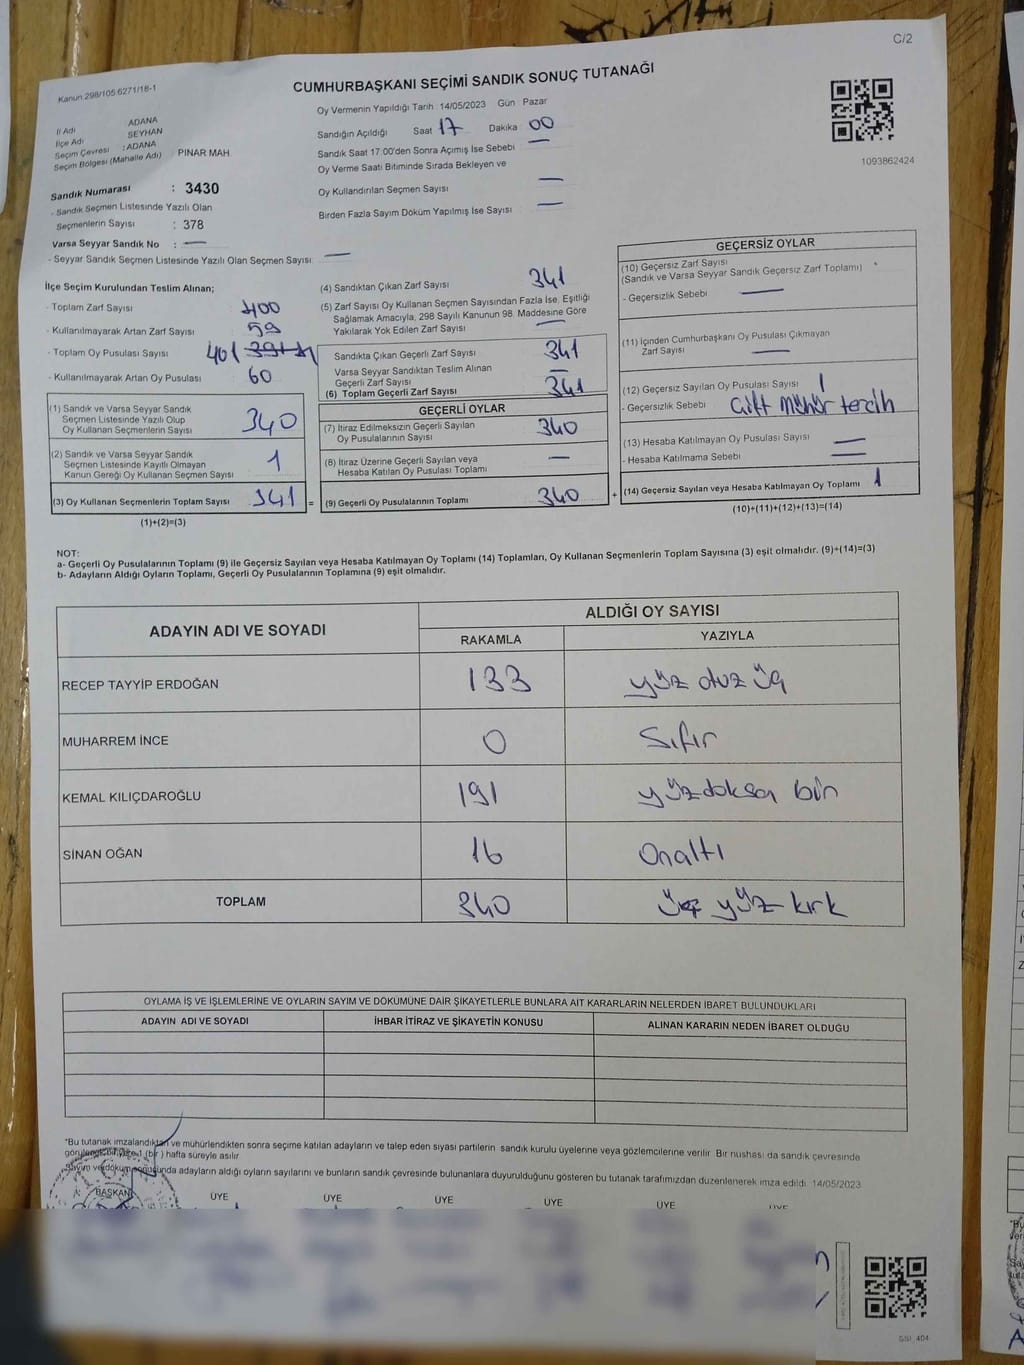 C/2
Kanun 298/105.6271/18-1
CUMHURBAŞKANI SEÇİMİ SANDIK SONUÇ TUTANAĞI
İl Adı ADANA
İlçe Adı SEYHAN
Seçim Çevresi : ADANA
Seçim Bölgesi (Mahalle Adı) PINAR MAH.
Sandık Numarası : 3430
- Sandık Seçmen Listesinde Yazılı Olan
Seçmenlerin Sayısı : 378
Varsa Seyyar Sandık No : —
- Seyyar Sandık Seçmen Listesinde Yazılı Olan Seçmen Sayısı: —
Oy Vermenin Yapıldığı Tarih 14/05/2023 Gün Pazar
Sandığın Açıldığı Saat 17 Dakika 00
Sandık Saat 17.00'den Sonra Açılmış İse Sebebi —
Oy Verme Saati Bitiminde Sırada Bekleyen ve
Oy Kullandırılan Seçmen Sayısı —
Birden Fazla Sayım Döküm Yapılmış İse Sayısı —
1093862424
İlçe Seçim Kurulundan Teslim Alınan;
- Toplam Zarf Sayısı 400
- Kullanılmayarak Artan Zarf Sayısı 59
- Toplam Oy Pusulası Sayısı 401
- Kullanılmayarak Artan Oy Pusulası 60
(1) Sandık ve Varsa Seyyar Sandık
Seçmen Listesinde Yazılı Olup
Oy Kullanan Seçmenlerin Sayısı 340
(2) Sandık ve Varsa Seyyar Sandık
Seçmen Listesinde Kayıtlı Olmayan
Kanun Gereği Oy Kullanan Seçmen Sayısı 1
(3) Oy Kullanan Seçmenlerin Toplam Sayısı 341 =
(1)+(2)=(3)
(4) Sandıktan Çıkan Zarf Sayısı 341
(5) Zarf Sayısı Oy Kullanan Seçmen Sayısından Fazla İse, Eşitliği
Sağlamak Amacıyla, 298 Sayılı Kanunun 98. Maddesine Göre
Yakılarak Yok Edilen Zarf Sayısı —
Sandıkta Çıkan Geçerli Zarf Sayısı 341
Varsa Seyyar Sandıktan Teslim Alınan
Geçerli Zarf Sayısı —
(6) Toplam Geçerli Zarf Sayısı 341
GEÇERLİ OYLAR
(7) İtiraz Edilmeksizin Geçerli Sayılan
Oy Pusulalarının Sayısı 340
(8) İtiraz Üzerine Geçerli Sayılan veya
Hesaba Katılan Oy Pusulası Toplamı —
(9) Geçerli Oy Pusulalarının Toplamı 340 +
GEÇERSİZ OYLAR
(10) Geçersiz Zarf Sayısı
(Sandık ve Varsa Seyyar Sandık Geçersiz Zarf Toplamı)
- Geçersizlik Sebebi —
(11) İçinden Cumhurbaşkanı Oy Pusulası Çıkmayan
Zarf Sayısı —
(12) Geçersiz Sayılan Oy Pusulası Sayısı 1
- Geçersizlik Sebebi Çift mühür tercih
(13) Hesaba Katılmayan Oy Pusulası Sayısı —
- Hesaba Katılmama Sebebi —
(14) Geçersiz Sayılan veya Hesaba Katılmayan Oy Toplamı 1
(10)+(11)+(12)+(13)=(14)
NOT:
a- Geçerli Oy Pusulalarının Toplamı (9) ile Geçersiz Sayılan veya Hesaba Katılmayan Oy Toplamı (14) Toplamları, Oy Kullanan Seçmenlerin Toplam Sayısına (3) eşit olmalıdır. (9)+(14)=(3)
b- Adayların Aldığı Oyların Toplamı, Geçerli Oy Pusulalarının Toplamına (9) eşit olmalıdır.
ADAYIN ADI VE SOYADI ALDIĞI OY SAYISI
RAKAMLA YAZIYLA
RECEP TAYYİP ERDOĞAN 133 yüz otuz üç
MUHARREM İNCE 0 Sıfır
KEMAL KILIÇDAROĞLU 191 yüzdoksan bir
SİNAN OĞAN 16 Onaltı
TOPLAM 340 üç yüz kırk
OYLAMA İŞ VE İŞLEMLERİNE VE OYLARIN SAYIM VE DÖKÜMÜNE DAİR ŞİKAYETLERLE BUNLARA AİT KARARLARIN NELERDEN İBARET BULUNDUKLARI
ADAYIN ADI VE SOYADI İHBAR İTİRAZ VE ŞİKAYETİN KONUSU ALINAN KARARIN NEDEN İBARET OLDUĞU
*Bu tutanak imzalandıktan ve mühürlendikten sonra seçime katılan adayların ve talep eden siyasi partilerin sandık kurulu üyelerine veya gözlemcilerine verilir. Bir nüshası da sandık çevresinde
(bir) hafta süreyle asılır
Sayım ve döküm sonucunda adayların aldığı oyların sayılarını ve bunların sandık çevresinde bulunanlara duyurulduğunu gösteren bu tutanak tarafımızdan düzenlenerek imza edildi. 14/05/2023
BAŞKAN ÜYE ÜYE ÜYE ÜYE ÜYE ÜYE
SSI_404